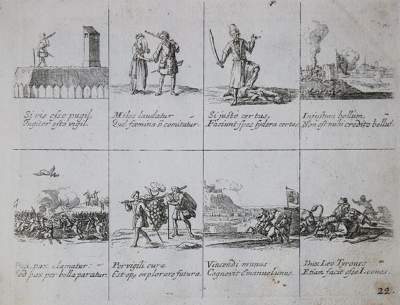 Si vis esse pugil,
Jugiter esto vigil.
Miles laudatur
Qui fæmina ñ comitatur
Si justo certas,
Faciunt spes sydera certas.
Injustum bellum,
Non est mihi credito bellus.
Pax, pax clamatur:
Sed pax per bella paratur.
Pervigili cura
Est ops explorare futura.
Vincendi munus
Cognovit Emanuel unus.
Dux Leo Tyrones
Etiam facit esse Leones.
22.